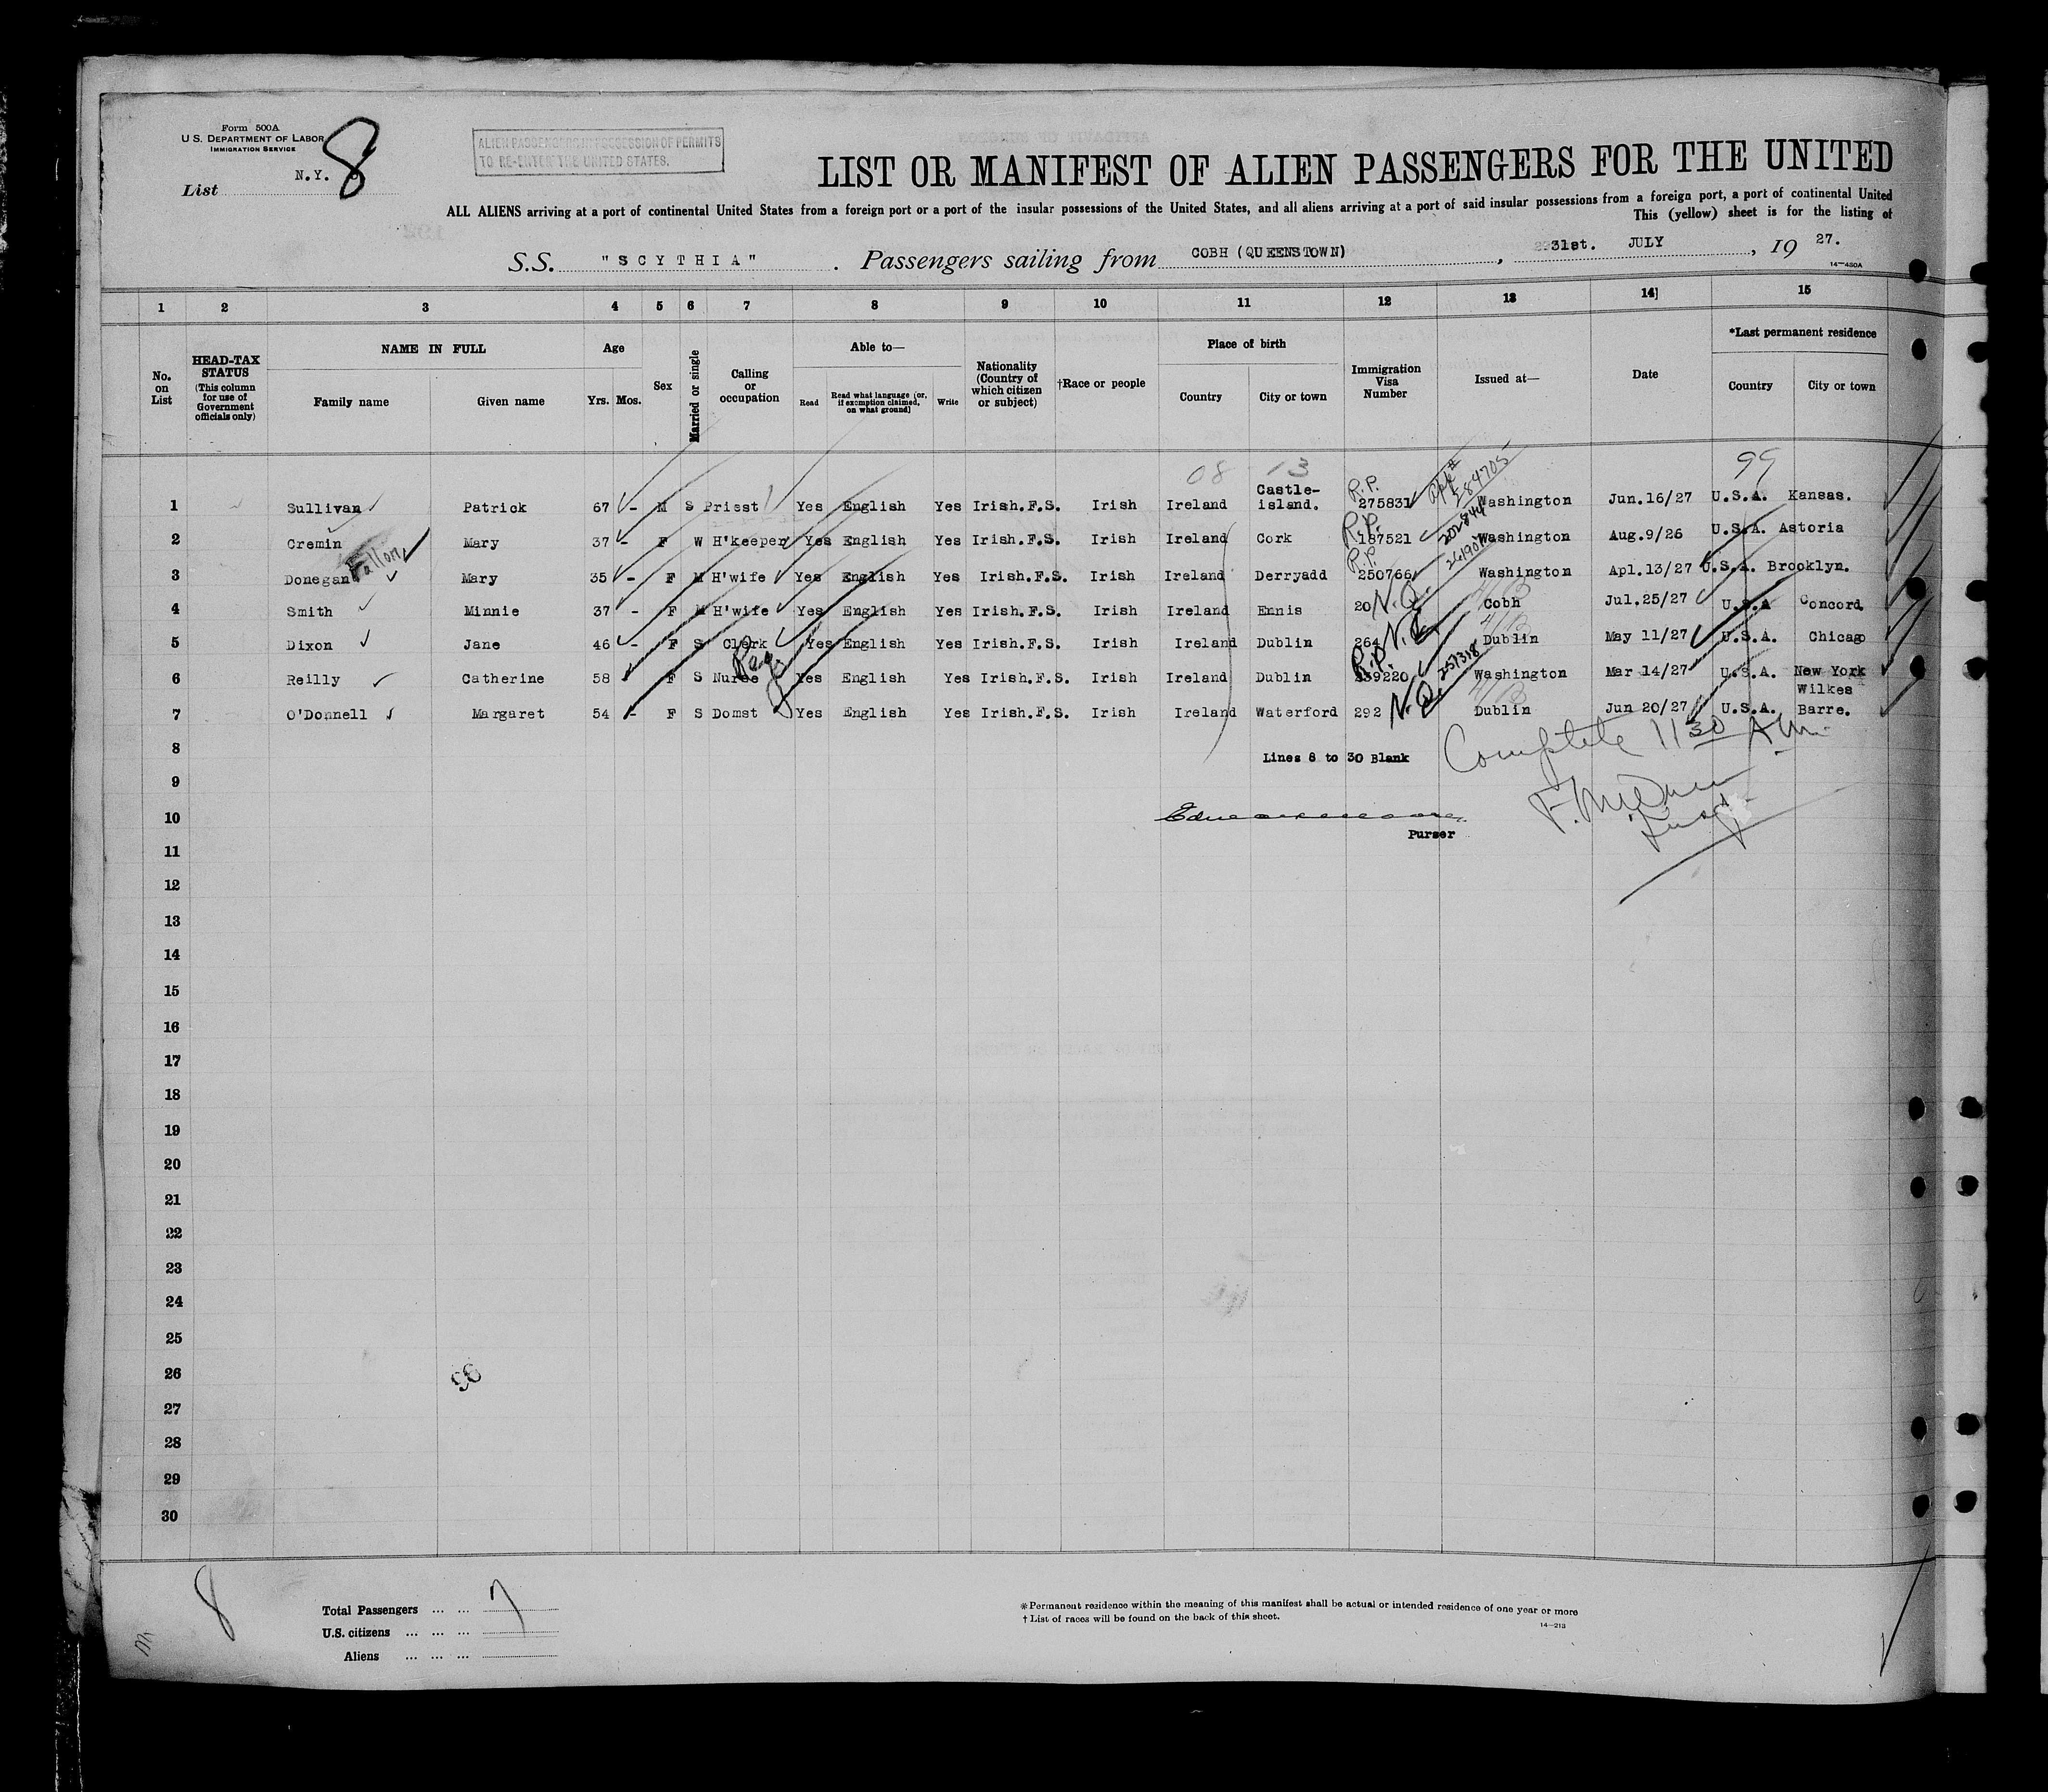 Form 500A
U. S. DEPARTMENT OF LABOR
IMMIGRATION SERVICE
List N.Y. 8
ALIEN PASSENGERS IN POSSESSION OF PERMITS
TO RE-ENTER THE UNITED STATES.
LIST OR MANIFEST OF ALIEN PASSENGERS FOR THE UNITED
ALL ALIENS arriving at a port of continental United States from a foreign port or a port of the insular possessions of the United States, and all aliens arriving at a port of said insular possessions from a foreign port, a port of continental United
This (yellow) sheet is for the listing of
S.S. "SCYTHIA" . Passengers sailing from COBH (QUEENSTOWN) , 31st. JULY , 19 27.
14—480A
1 2 3 4 5 6 7 8 9 10 11 12 13 14 15
No. on List
HEAD-TAX STATUS (This column for use of Government officials only)
NAME IN FULL
Family name Given name
Age
Yrs. Mos.
Sex
Married or single
Calling or occupation
Able to—
Read Read what language (or, if exemption claimed, on what ground) Write
Nationality (Country of which citizen or subject)
†Race or people
Place of birth
Country City or town
Immigration Visa Number
Issued at—
Date
*Last permanent residence
Country City or town
08 13 99
1 Sullivan Patrick 67 - M S Priest Yes English Yes Irish.F.S. Irish Ireland Castle-island. R.P. 275831 Washington Jun.16/27 U.S.A. Kansas.
2 Cremin Mary 37 - F W H'keeper Yes English Yes Irish.F.S. Irish Ireland Cork R.P. 187521 202844 Washington Aug.9/26 U.S.A. Astoria
3 Donegan Fallon Mary 35 - F M H'wife Yes English Yes Irish.F.S. Irish Ireland Derryadd R.P. 250766 Washington Apl.13/27 U.S.A. Brooklyn.
4 Smith Minnie 37 - F M H'wife Yes English Yes Irish.F.S. Irish Ireland Ennis 20 N.Q. Cobh Jul.25/27 U.S.A Concord
5 Dixon Jane 46 - F S Clerk Yes English Yes Irish.F.S. Irish Ireland Dublin 264 N.Q. Dublin May 11/27 U.S.A. Chicago
6 Reilly Catherine 58 - F S Nurse Yes English Yes Irish.F.S. Irish Ireland Dublin R.P. 239220 257318 Washington Mar 14/27 U.S.A. New York
7 O'Donnell Margaret 54 - F S Domst Yes English Yes Irish.F.S. Irish Ireland Waterford 292 N.Q. Dublin Jun 20/27 U.S.A. Wilkes Barre.
8 Lines 8 to 30 Blank Complete 11 30 A.M.
9
10
Purser
11
12
13
14
15
16
17
18
19
20
21
22
23
24
25
26
27
28
29
30
8
Total Passengers ... ... 7
U.S. citizens ... ... ...
Aliens ... ... ...
*Permanent residence within the meaning of this manifest shall be actual or intended residence of one year or more
† List of races will be found on the back of this sheet.
14—213